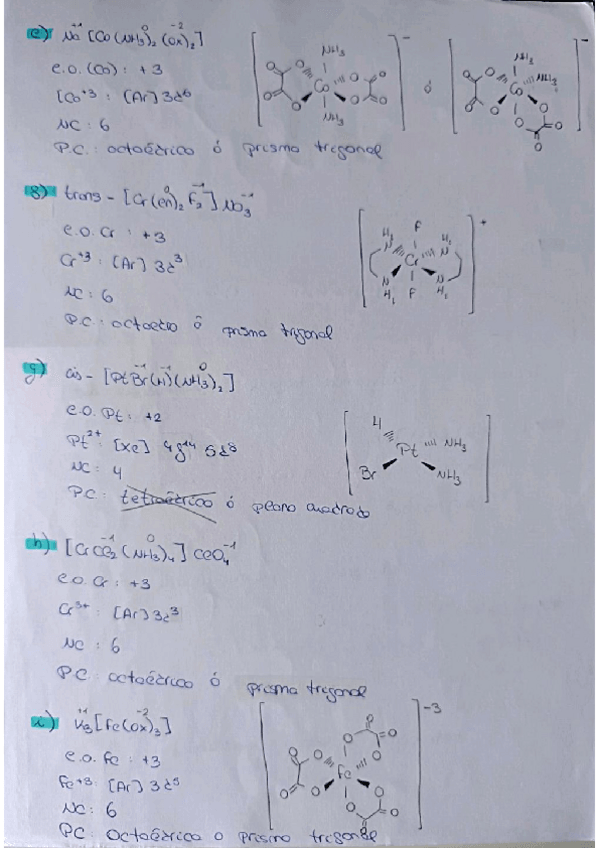 e) Na⁺¹ [Co(NH₃)₂⁰ (Ox)₂⁻²]
e.o. (Co): +3
[Co⁺³: [Ar] 3d⁶
NC: 6
P.C.: octaédrico ó prisma trigonal
NH₃
O O O O
O O Co O O
NH₃
-
ó
NH₃
O O NH₃
O O Co O
O O
O
-
f) trans-[Cr(en)₂⁰ F₂⁻¹] NO₃⁻¹
e.o. Cr: +3
Cr⁺³: [Ar] 3d³
NC: 6
P.C: octaedro ó prisma trigonal
F
H₂ H₂
N N
Cr
N N
H₂ H₂
F
+
g) cis-[PtBr⁻¹(H)⁻¹(NH₃)₂⁰]
e.o. Pt: +2
Pt²⁺: [Xe] 4f¹⁴ 5d⁸
NC: 4
P.C: tetraédrico ó plano cuadrado
H NH₃
Pt
Br NH₃
h) [CrCl₂⁻¹(NH₃)₄⁰] ClO₄⁻¹
e.o. Cr: +3
Cr³⁺: [Ar] 3d³
NC: 6
P.C: octaédrico ó prisma trigonal
i) K₃⁺¹[Fe(Ox)₃⁻²]
e.o. Fe: +3
Fe⁺³: [Ar] 3d⁵
NC: 6
P.C: Octaédrico o prisma trigonal
O
O O
O O O
Fe
O O O
O O
O
-3